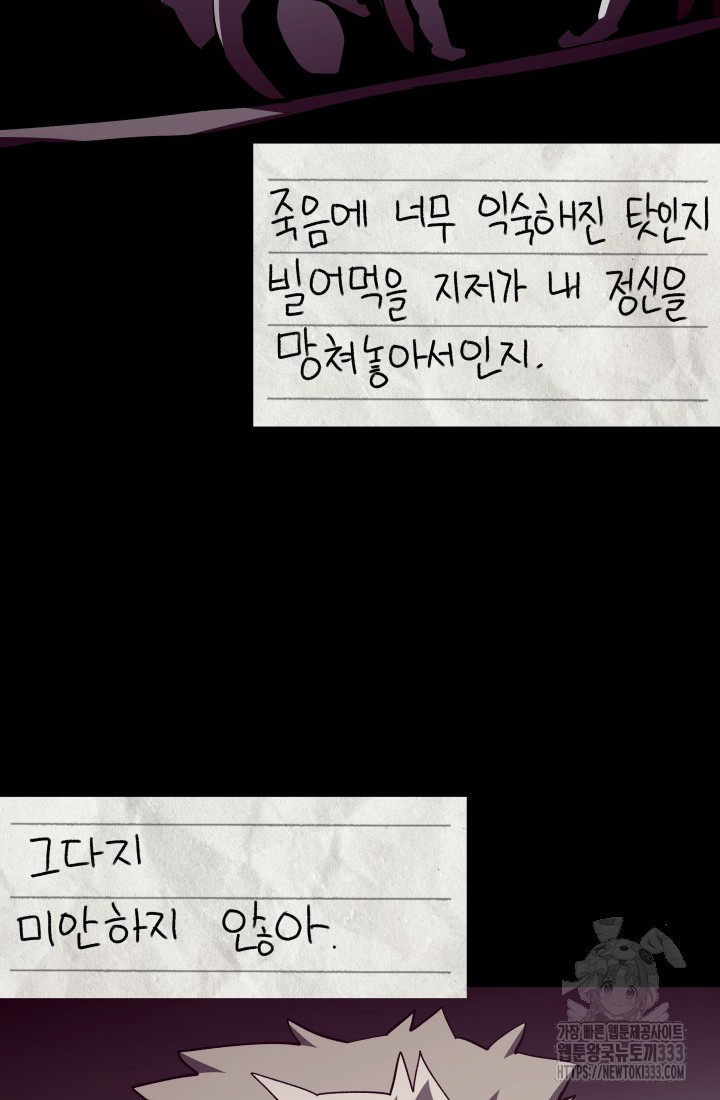 죽음에 너무 익숙해진 탓인지
빌어먹을 지저가 내 정신을
망쳐놓아서인지.
그다지
미안하지 않아.
가장 빠른 웹툰제공사이트
웹툰왕국뉴토끼333
HTTPS://NEWTOKI333.COM